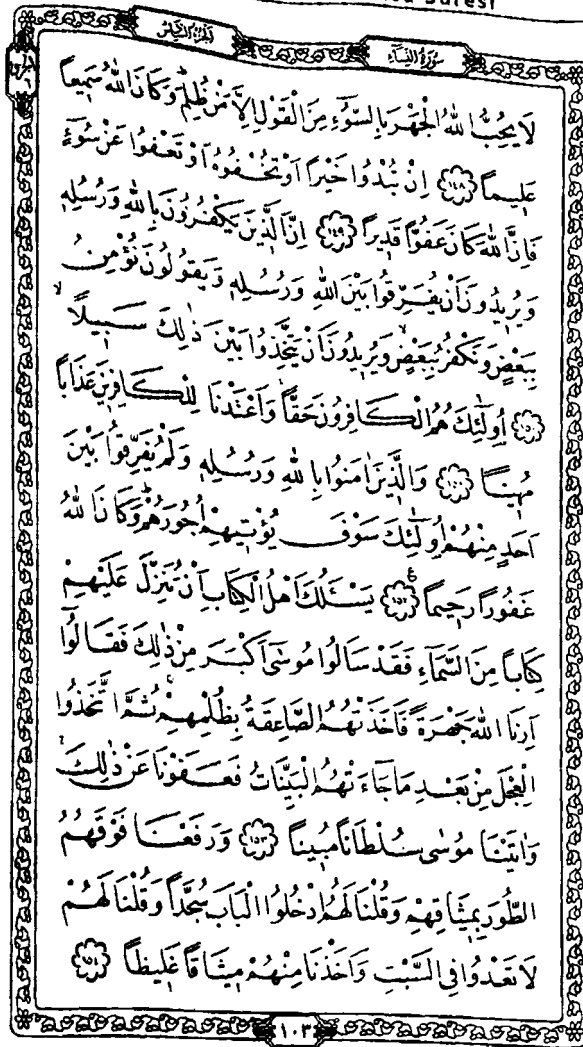 Suresi
الجزء السادس
سورة النساء
لَا يُحِبُّ اللّٰهُ الْجَهْرَ بِالسُّٓوءِ مِنَ الْقَوْلِ اِلَّا مَنْ ظُلِمَۜ وَكَانَ اللّٰهُ سَمٖيعاً
عَلٖيماً ﴿١٤٨﴾ اِنْ تُبْدُوا خَيْراً اَوْ تُخْفُوهُ اَوْ تَعْفُوا عَنْ سُٓوءٍ
فَاِنَّ اللّٰهَ كَانَ عَفُوّاً قَدٖيراً ﴿١٤٩﴾ اِنَّ الَّذٖينَ يَكْفُرُونَ بِاللّٰهِ وَرُسُلِهٖ
وَيُرٖيدُونَ اَنْ يُفَرِّقُوا بَيْنَ اللّٰهِ وَرُسُلِهٖ وَيَقُولُونَ نُؤْمِنُ
بِبَعْضٍ وَنَكْفُرُ بِبَعْضٍ وَيُرٖيدُونَ اَنْ يَتَّخِذُوا بَيْنَ ذٰلِكَ سَبٖيلاً
﴿١٥٠﴾ اُو۬لٰٓئِكَ هُمُ الْكَافِرُونَ حَقّاً وَاَعْتَدْنَا لِلْكَافِرٖينَ عَذَاباً
مُهٖيناً ﴿١٥١﴾ وَالَّذٖينَ اٰمَنُوا بِاللّٰهِ وَرُسُلِهٖ وَلَمْ يُفَرِّقُوا بَيْنَ
اَحَدٍ مِنْهُمْ اُو۬لٰٓئِكَ سَوْفَ يُؤْتٖيهِمْ اُجُورَهُمْۜ وَكَانَ اللّٰهُ
غَفُوراً رَحٖيماً ﴿١٥٢﴾ يَسْـَٔلُكَ اَهْلُ الْكِتَابِ اَنْ تُنَزِّلَ عَلَيْهِمْ
كِتَاباً مِنَ السَّمَٓاءِ فَقَدْ سَاَلُوا مُوسٰٓى اَكْبَرَ مِنْ ذٰلِكَ فَقَالُٓوا
اَرِنَا اللّٰهَ جَهْرَةً فَاَخَذَتْهُمُ الصَّاعِقَةُ بِظُلْمِهِمْۚ ثُمَّ اتَّخَذُوا
الْعِجْلَ مِنْ بَعْدِ مَا جَٓاءَتْهُمُ الْبَيِّنَاتُ فَعَفَوْنَا عَنْ ذٰلِكَۚ
وَاٰتَيْنَا مُوسٰى سُلْطَاناً مُبٖيناً ﴿١٥٣﴾ وَرَفَعْنَا فَوْقَهُمُ
الطُّورَ بِمٖيثَاقِهِمْ وَقُلْنَا لَهُمُ ادْخُلُوا الْبَابَ سُجَّداً وَقُلْنَا لَهُمْ
لَا تَعْدُوا فِي السَّبْتِ وَاَخَذْنَا مِنْهُمْ مٖيثَاقاً غَلٖيظاً ﴿١٥٤﴾
١٠٣